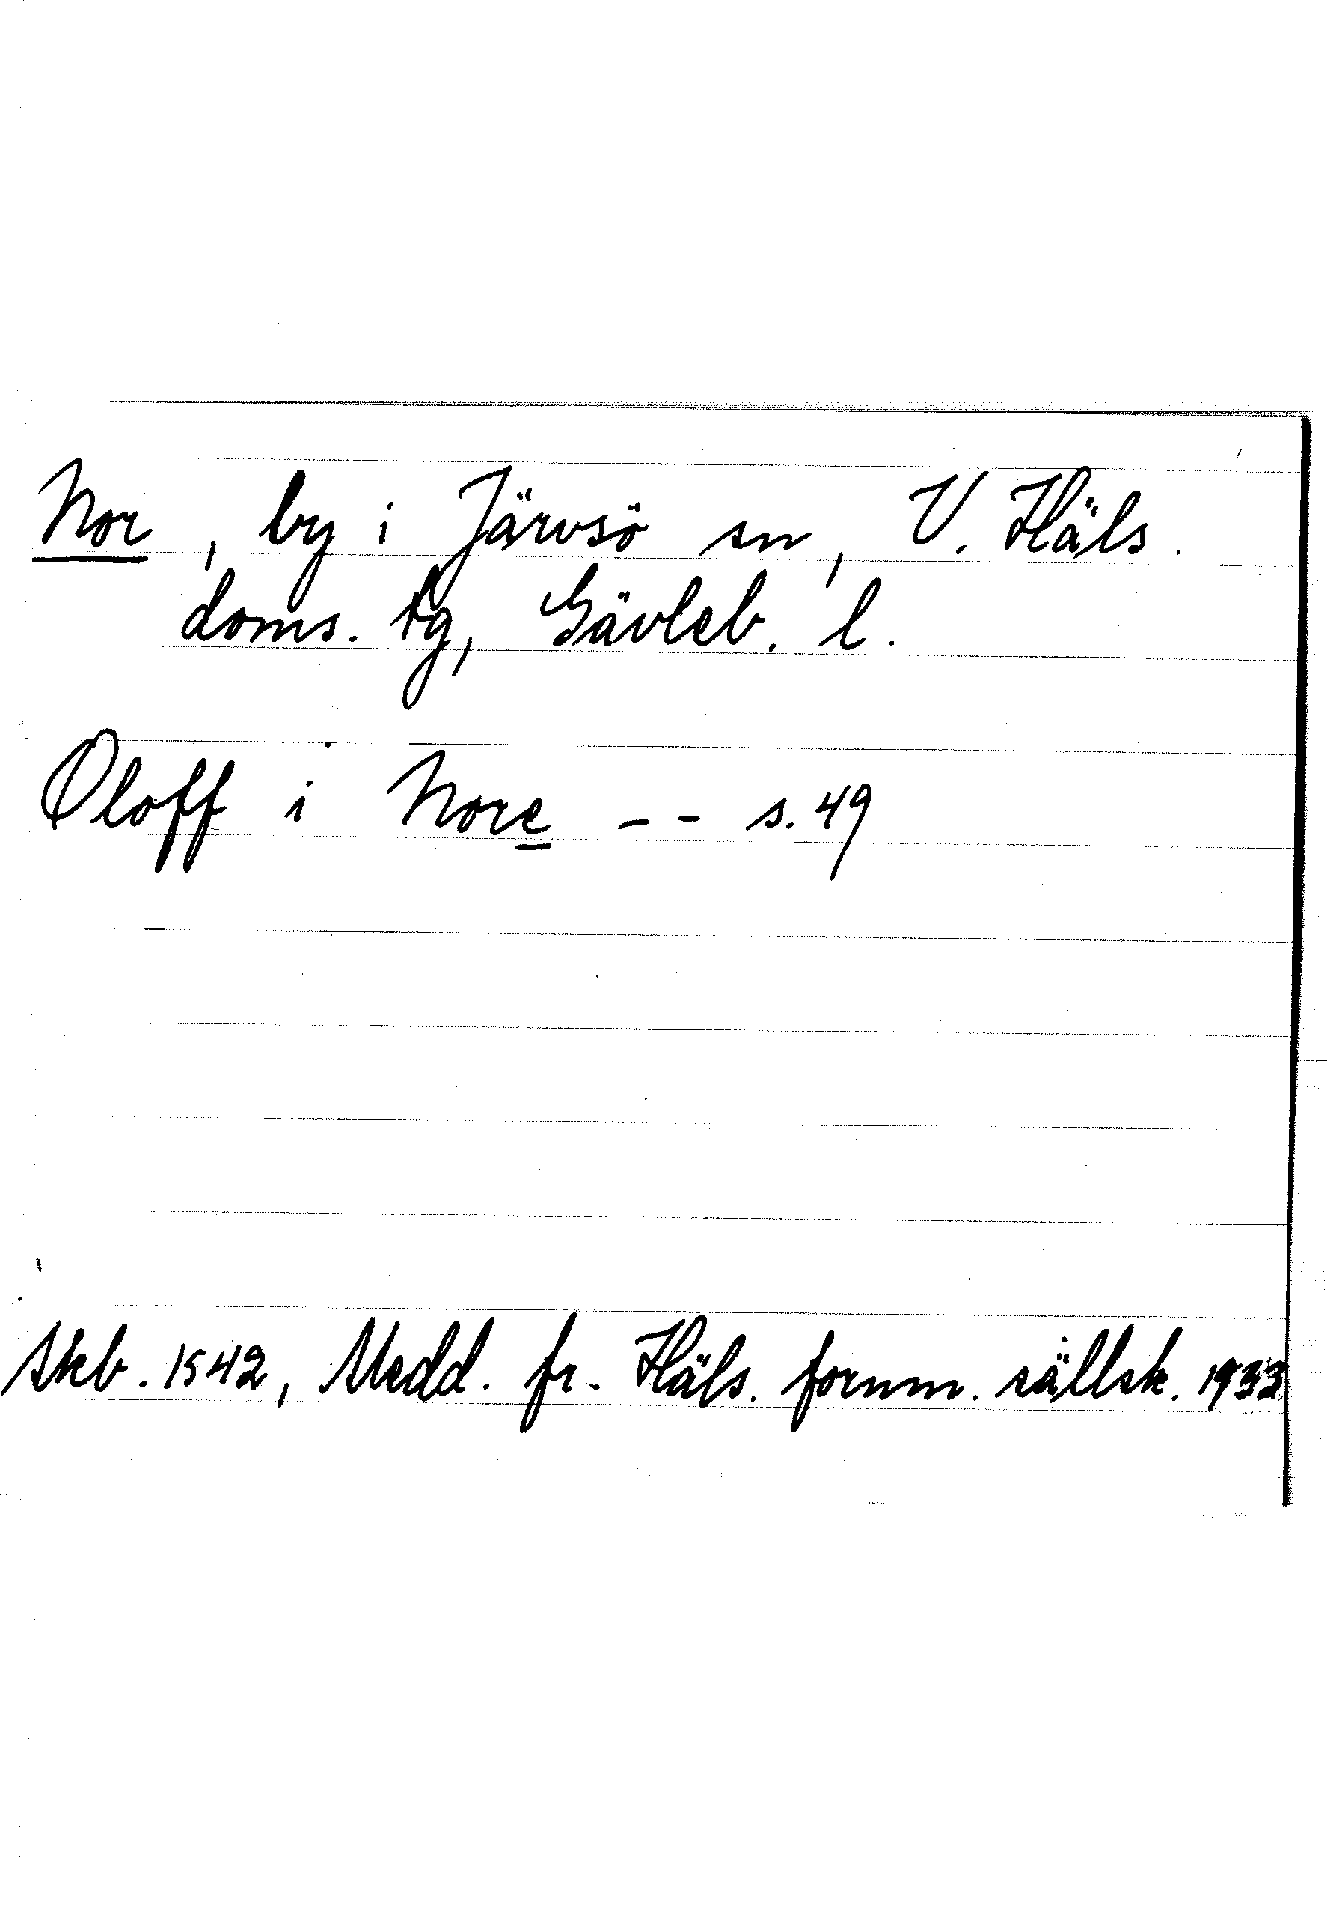 Nor, by i Järvsö sn, V. Häls.
doms. tg, Gävleb. l.
Oloff i Nore -- s. 49
Skb. 1542, Medd. fr. Häls. fornm. sällsk. 1933